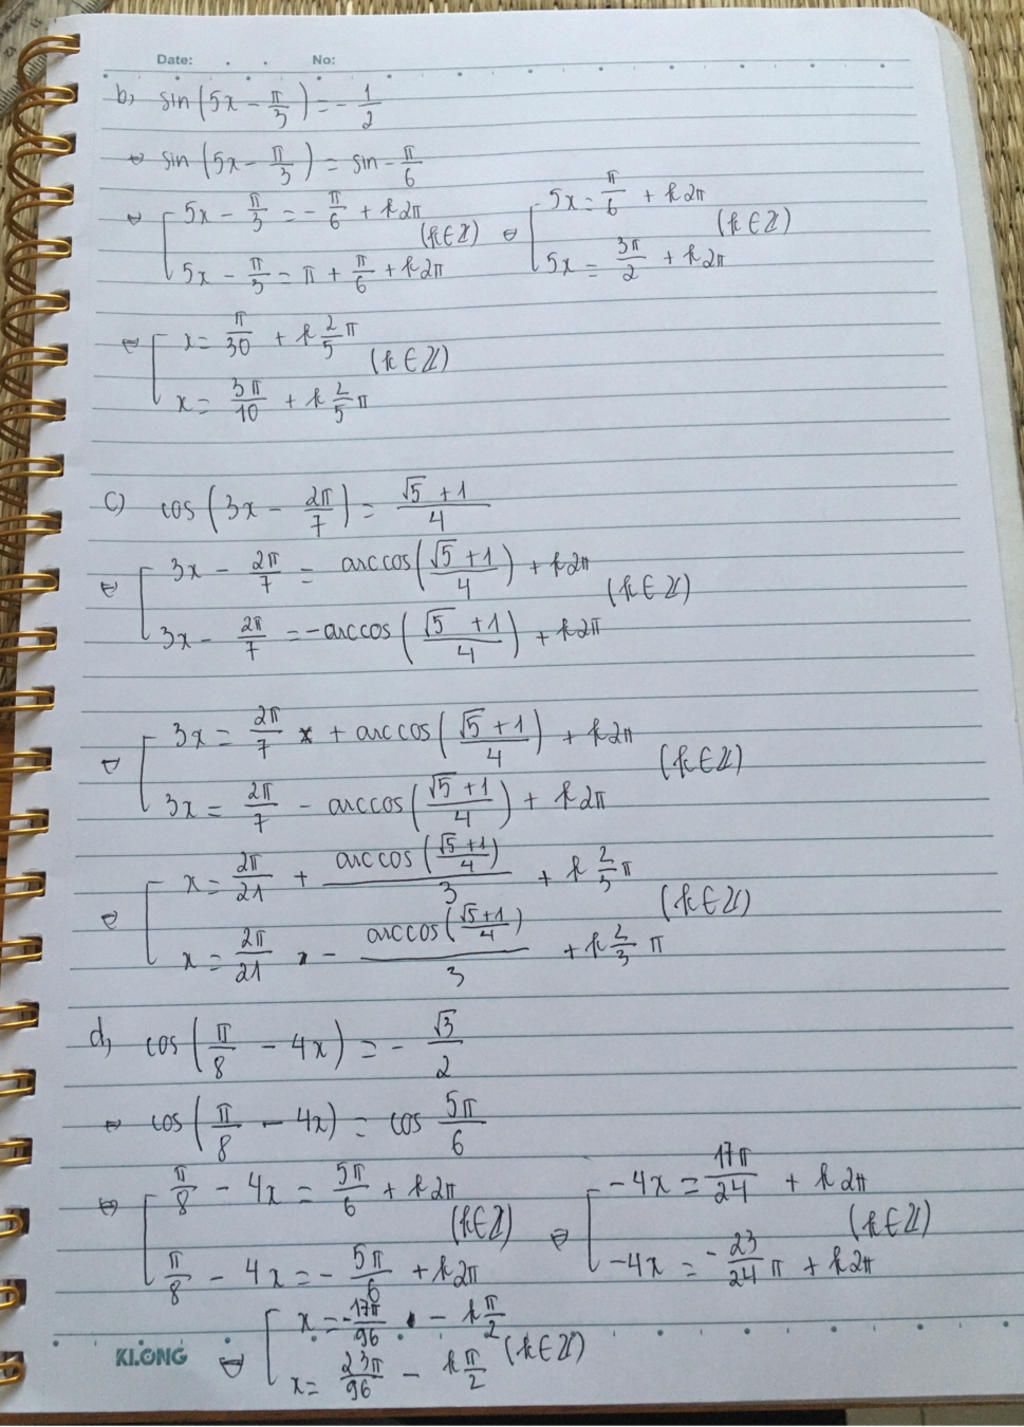 Date: . . No:
b, sin(5x - π/3) = - 1/2
⇔ sin(5x - π/3) = sin - π/6
⇔ [ 5x - π/3 = - π/6 + k2π
5x - π/3 = π + π/6 + k2π (k∈Z)
⇔ [ 5x = π/6 + k2π
5x = 3π/2 + k2π (k∈Z)
⇔ [ x = π/30 + k 2/5 π
x = 3π/10 + k 2/5 π (k∈Z)
c) cos(3x - 2π/7) = (√5 + 1)/4
⇔ [ 3x - 2π/7 = arccos((√5 + 1)/4) + k2π
3x - 2π/7 = -arccos((√5 + 1)/4) + k2π (k∈Z)
⇔ [ 3x = 2π/7 + arccos((√5 + 1)/4) + k2π
3x = 2π/7 - arccos((√5 + 1)/4) + k2π (k∈Z)
⇔ [ x = 2π/21 + arccos((√5+1)/4)/3 + k 2/3 π
x = 2π/21 - arccos((√5+1)/4)/3 + k 2/3 π (k∈Z)
d, cos(π/8 - 4x) = - √3/2
⇔ cos(π/8 - 4x) = cos 5π/6
⇔ [ π/8 - 4x = 5π/6 + k2π
π/8 - 4x = - 5π/6 + k2π (k∈Z)
⇔ [ -4x = 17π/24 + k2π
-4x = - 23/24 π + k2π (k∈Z)
⇔ [ x = -17π/96 - k π/2
x = 23π/96 - k π/2 (k∈Z)
KLONG